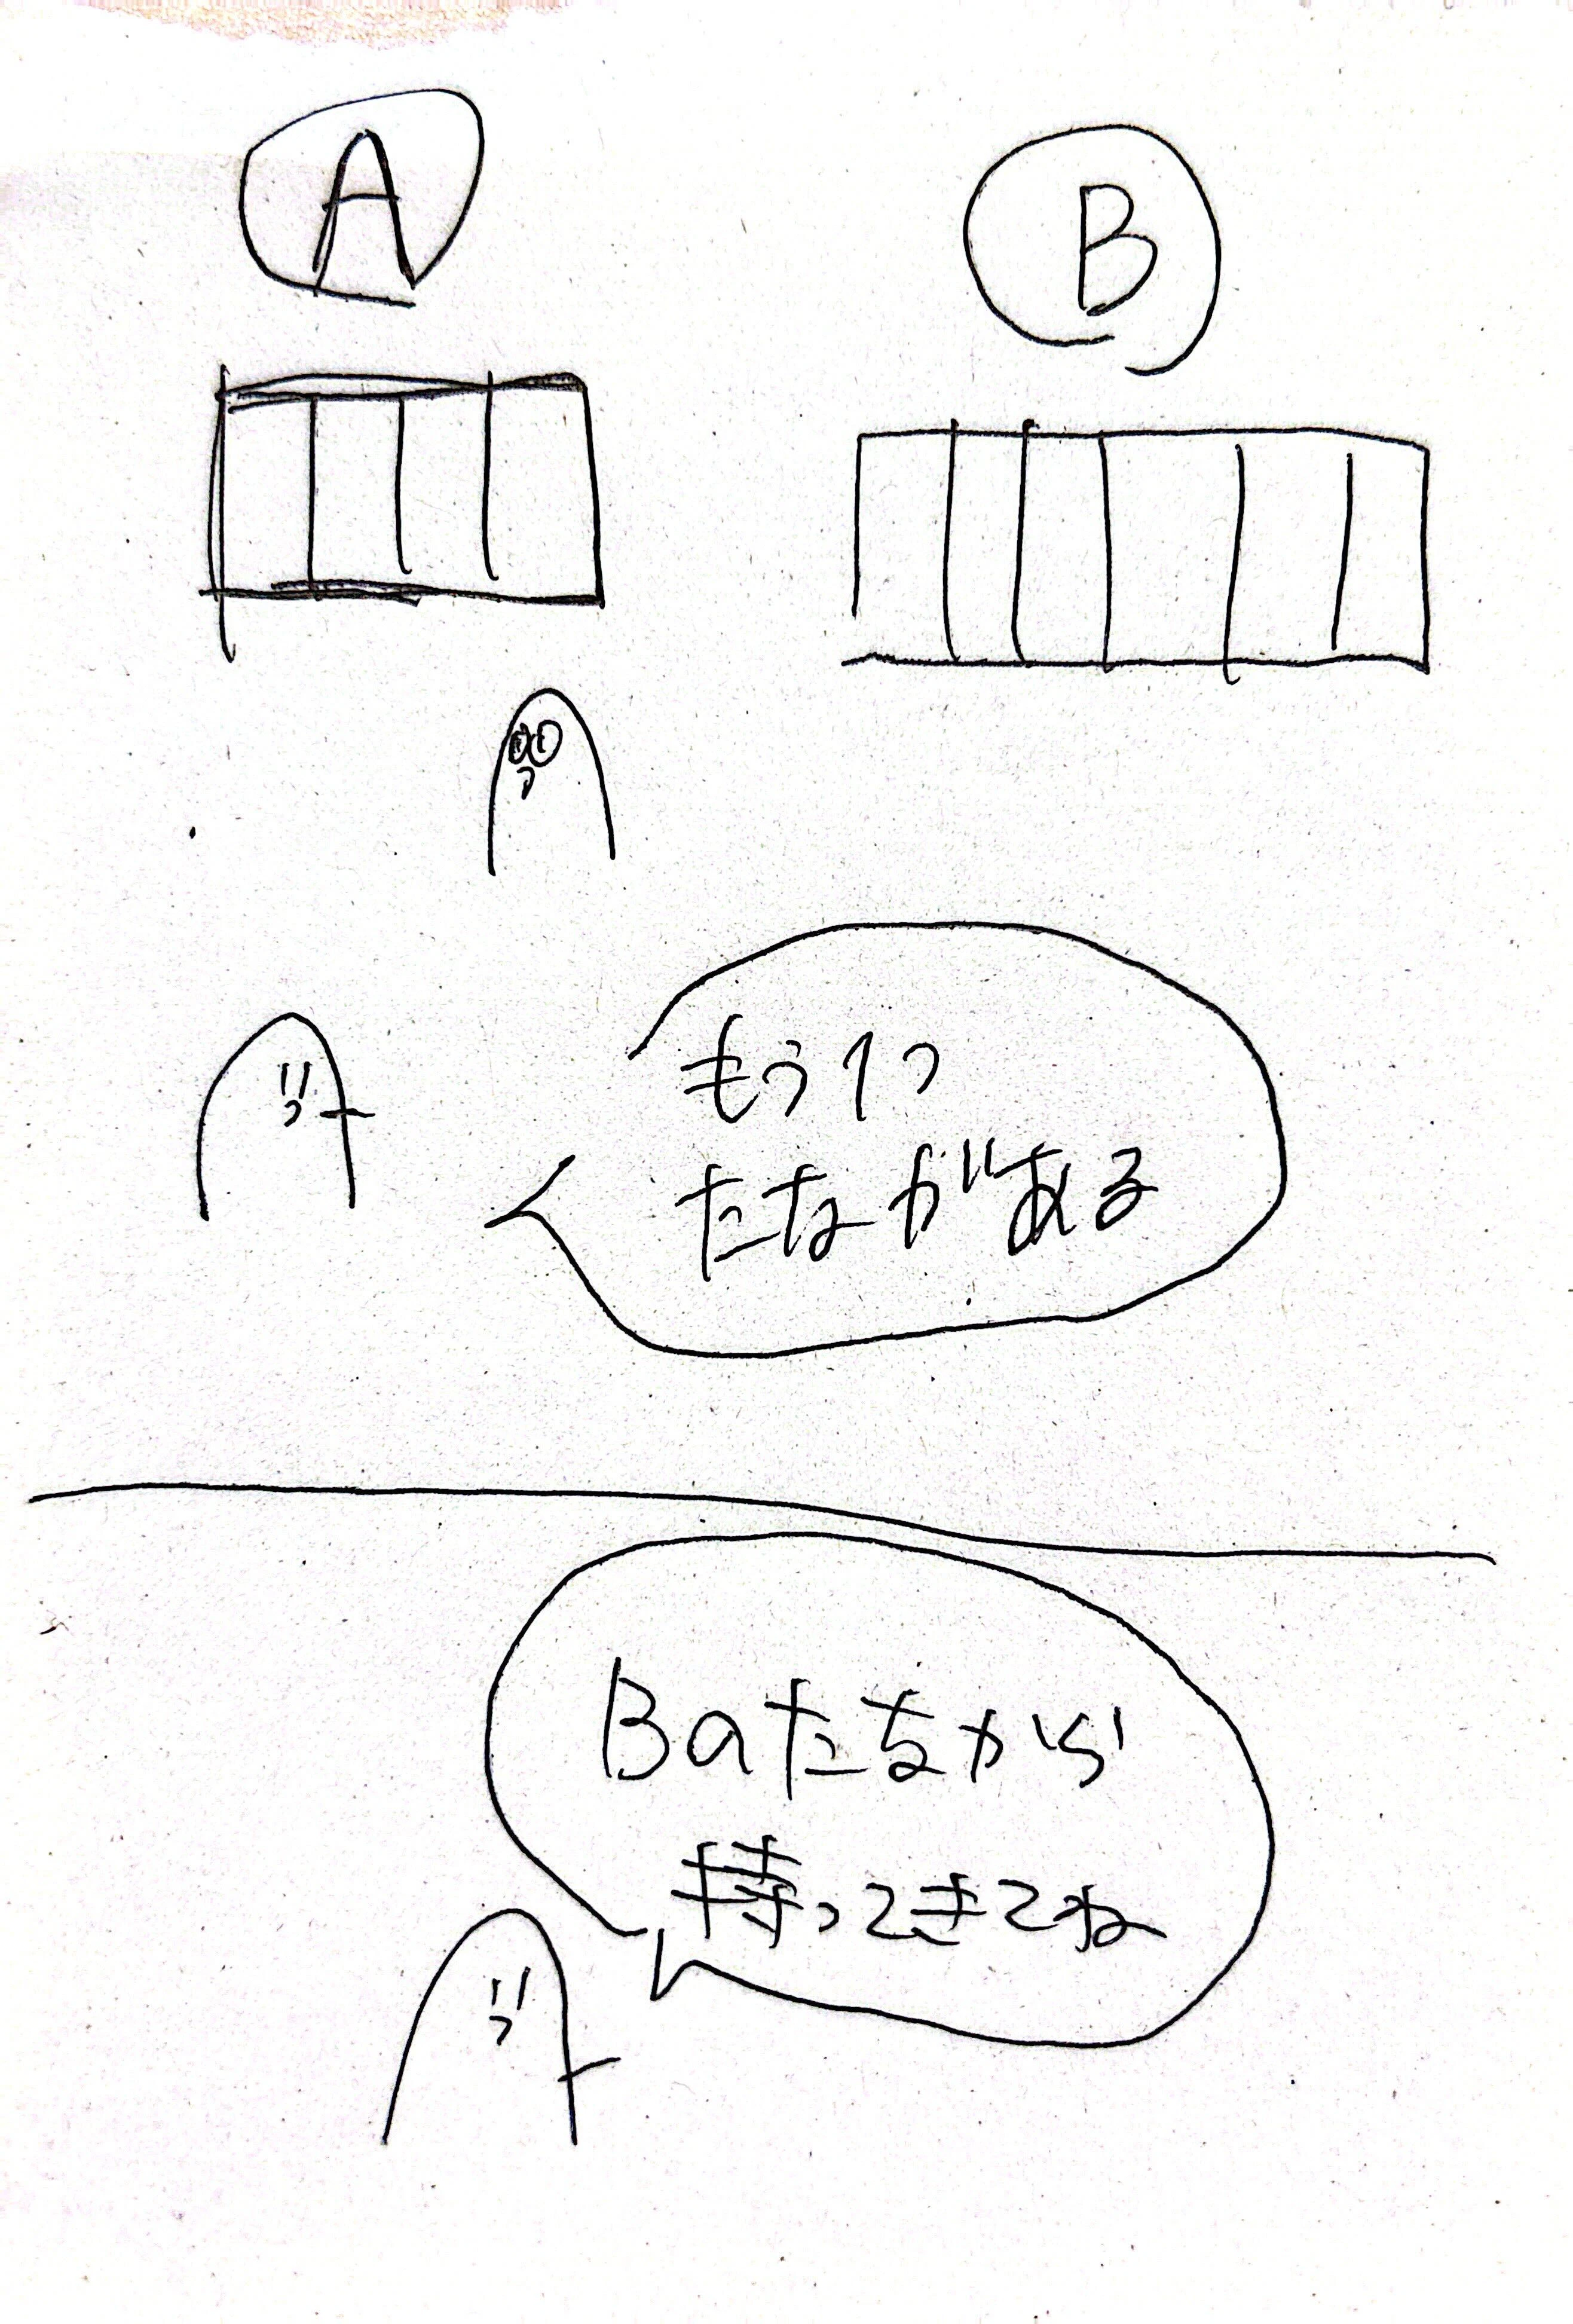 A
B
もう1つ
たながある
Bのたなから
持ってきてね